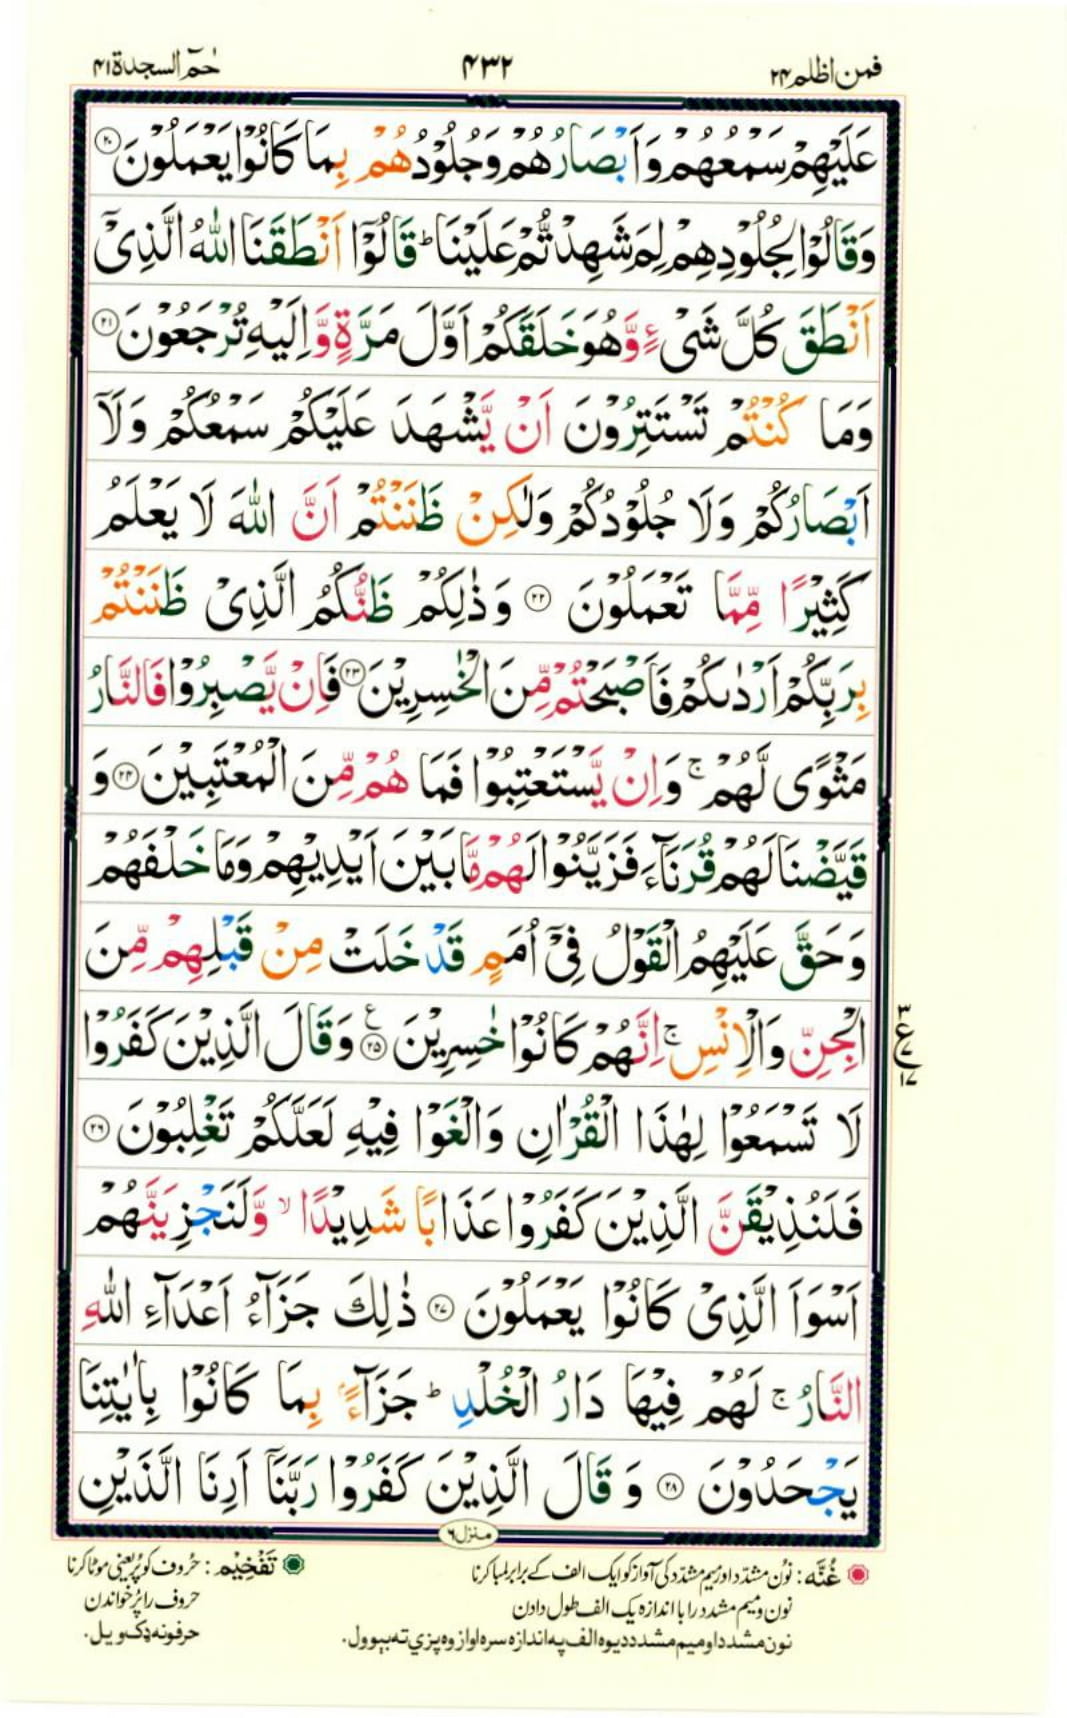 فمن اظلم ۲۴
۴۳۲
حٰمٓ السجدۃ ۴۱
عَلَيْهِمْ سَمْعُهُمْ وَاَبْصَارُهُمْ وَجُلُوْدُهُمْ بِمَا كَانُوْا يَعْمَلُوْنَ ۲۰
وَقَالُوْا لِجُلُوْدِهِمْ لِمَ شَهِدْتُّمْ عَلَيْنَا ؕ قَالُوْٓا اَنْطَقَنَا اللّٰهُ الَّذِىْٓ
اَنْطَقَ كُلَّ شَىْءٍ وَّهُوَ خَلَقَكُمْ اَوَّلَ مَرَّةٍ وَّاِلَيْهِ تُرْجَعُوْنَ ۲۱
وَمَا كُنْتُمْ تَسْتَتِرُوْنَ اَنْ يَّشْهَدَ عَلَيْكُمْ سَمْعُكُمْ وَلَآ
اَبْصَارُكُمْ وَلَا جُلُوْدُكُمْ وَلٰكِنْ ظَنَنْتُمْ اَنَّ اللّٰهَ لَا يَعْلَمُ
كَثِيْرًا مِّمَّا تَعْمَلُوْنَ ۲۲ وَذٰلِكُمْ ظَنُّكُمُ الَّذِىْ ظَنَنْتُمْ
بِرَبِّكُمْ اَرْدٰىكُمْ فَاَصْبَحْتُمْ مِّنَ الْخٰسِرِيْنَ ۲۳ فَاِنْ يَّصْبِرُوْا فَالنَّارُ
مَثْوًى لَّهُمْ ۚ وَاِنْ يَّسْتَعْتِبُوْا فَمَا هُمْ مِّنَ الْمُعْتَبِيْنَ ۲۴ وَ
قَيَّضْنَا لَهُمْ قُرَنَآءَ فَزَيَّنُوْا لَهُمْ مَّا بَيْنَ اَيْدِيْهِمْ وَمَا خَلْفَهُمْ
وَحَقَّ عَلَيْهِمُ الْقَوْلُ فِىْٓ اُمَمٍ قَدْ خَلَتْ مِنْ قَبْلِهِمْ مِّنَ
الْجِنِّ وَالْاِنْسِ ۚ اِنَّهُمْ كَانُوْا خٰسِرِيْنَ ۲۵ ع وَقَالَ الَّذِيْنَ كَفَرُوْا
۳ ع ۷ ۱۷
لَا تَسْمَعُوْا لِهٰذَا الْقُرْاٰنِ وَالْغَوْا فِيْهِ لَعَلَّكُمْ تَغْلِبُوْنَ ۲۶
فَلَنُذِيْقَنَّ الَّذِيْنَ كَفَرُوْا عَذَابًا شَدِيْدًا ۙ وَّلَنَجْزِيَنَّهُمْ
اَسْوَاَ الَّذِىْ كَانُوْا يَعْمَلُوْنَ ۲۷ ذٰلِكَ جَزَآءُ اَعْدَآءِ اللّٰهِ
النَّارُ ۚ لَهُمْ فِيْهَا دَارُ الْخُلْدِ ؕ جَزَآءًۢ بِمَا كَانُوْا بِاٰيٰتِنَا
يَجْحَدُوْنَ ۲۸ وَ قَالَ الَّذِيْنَ كَفَرُوْا رَبَّنَآ اَرِنَا الَّذَيْنِ
منزل ۶
غُنَّه : نُون مشدّد اور میم مشدّد کی آواز کو ایک الف کے برابر لمبا کرنا
نون و میم مشدد را با اندازہ یک الف طول دادن
نون مشدد او میم مشدد دیوہ الف په اندازه سره اواز وه پزي ته بېوول.
تَفْخِيْم : حُروف کو پُر یعنی موٹا کرنا
حروف را پُر خواندن
حرفونه ډک ویل.